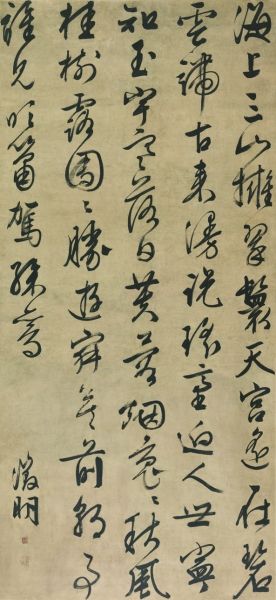 海上三山擁翠鬟天宮遙在碧
雲端古來漫説瑤臺迥人世寧
知玉宇寒落日芙蓉烟裊〻秋風
桂樹露團〻勝遊寂寞前朝事
誰見吹簫駕綵鸞
徵明